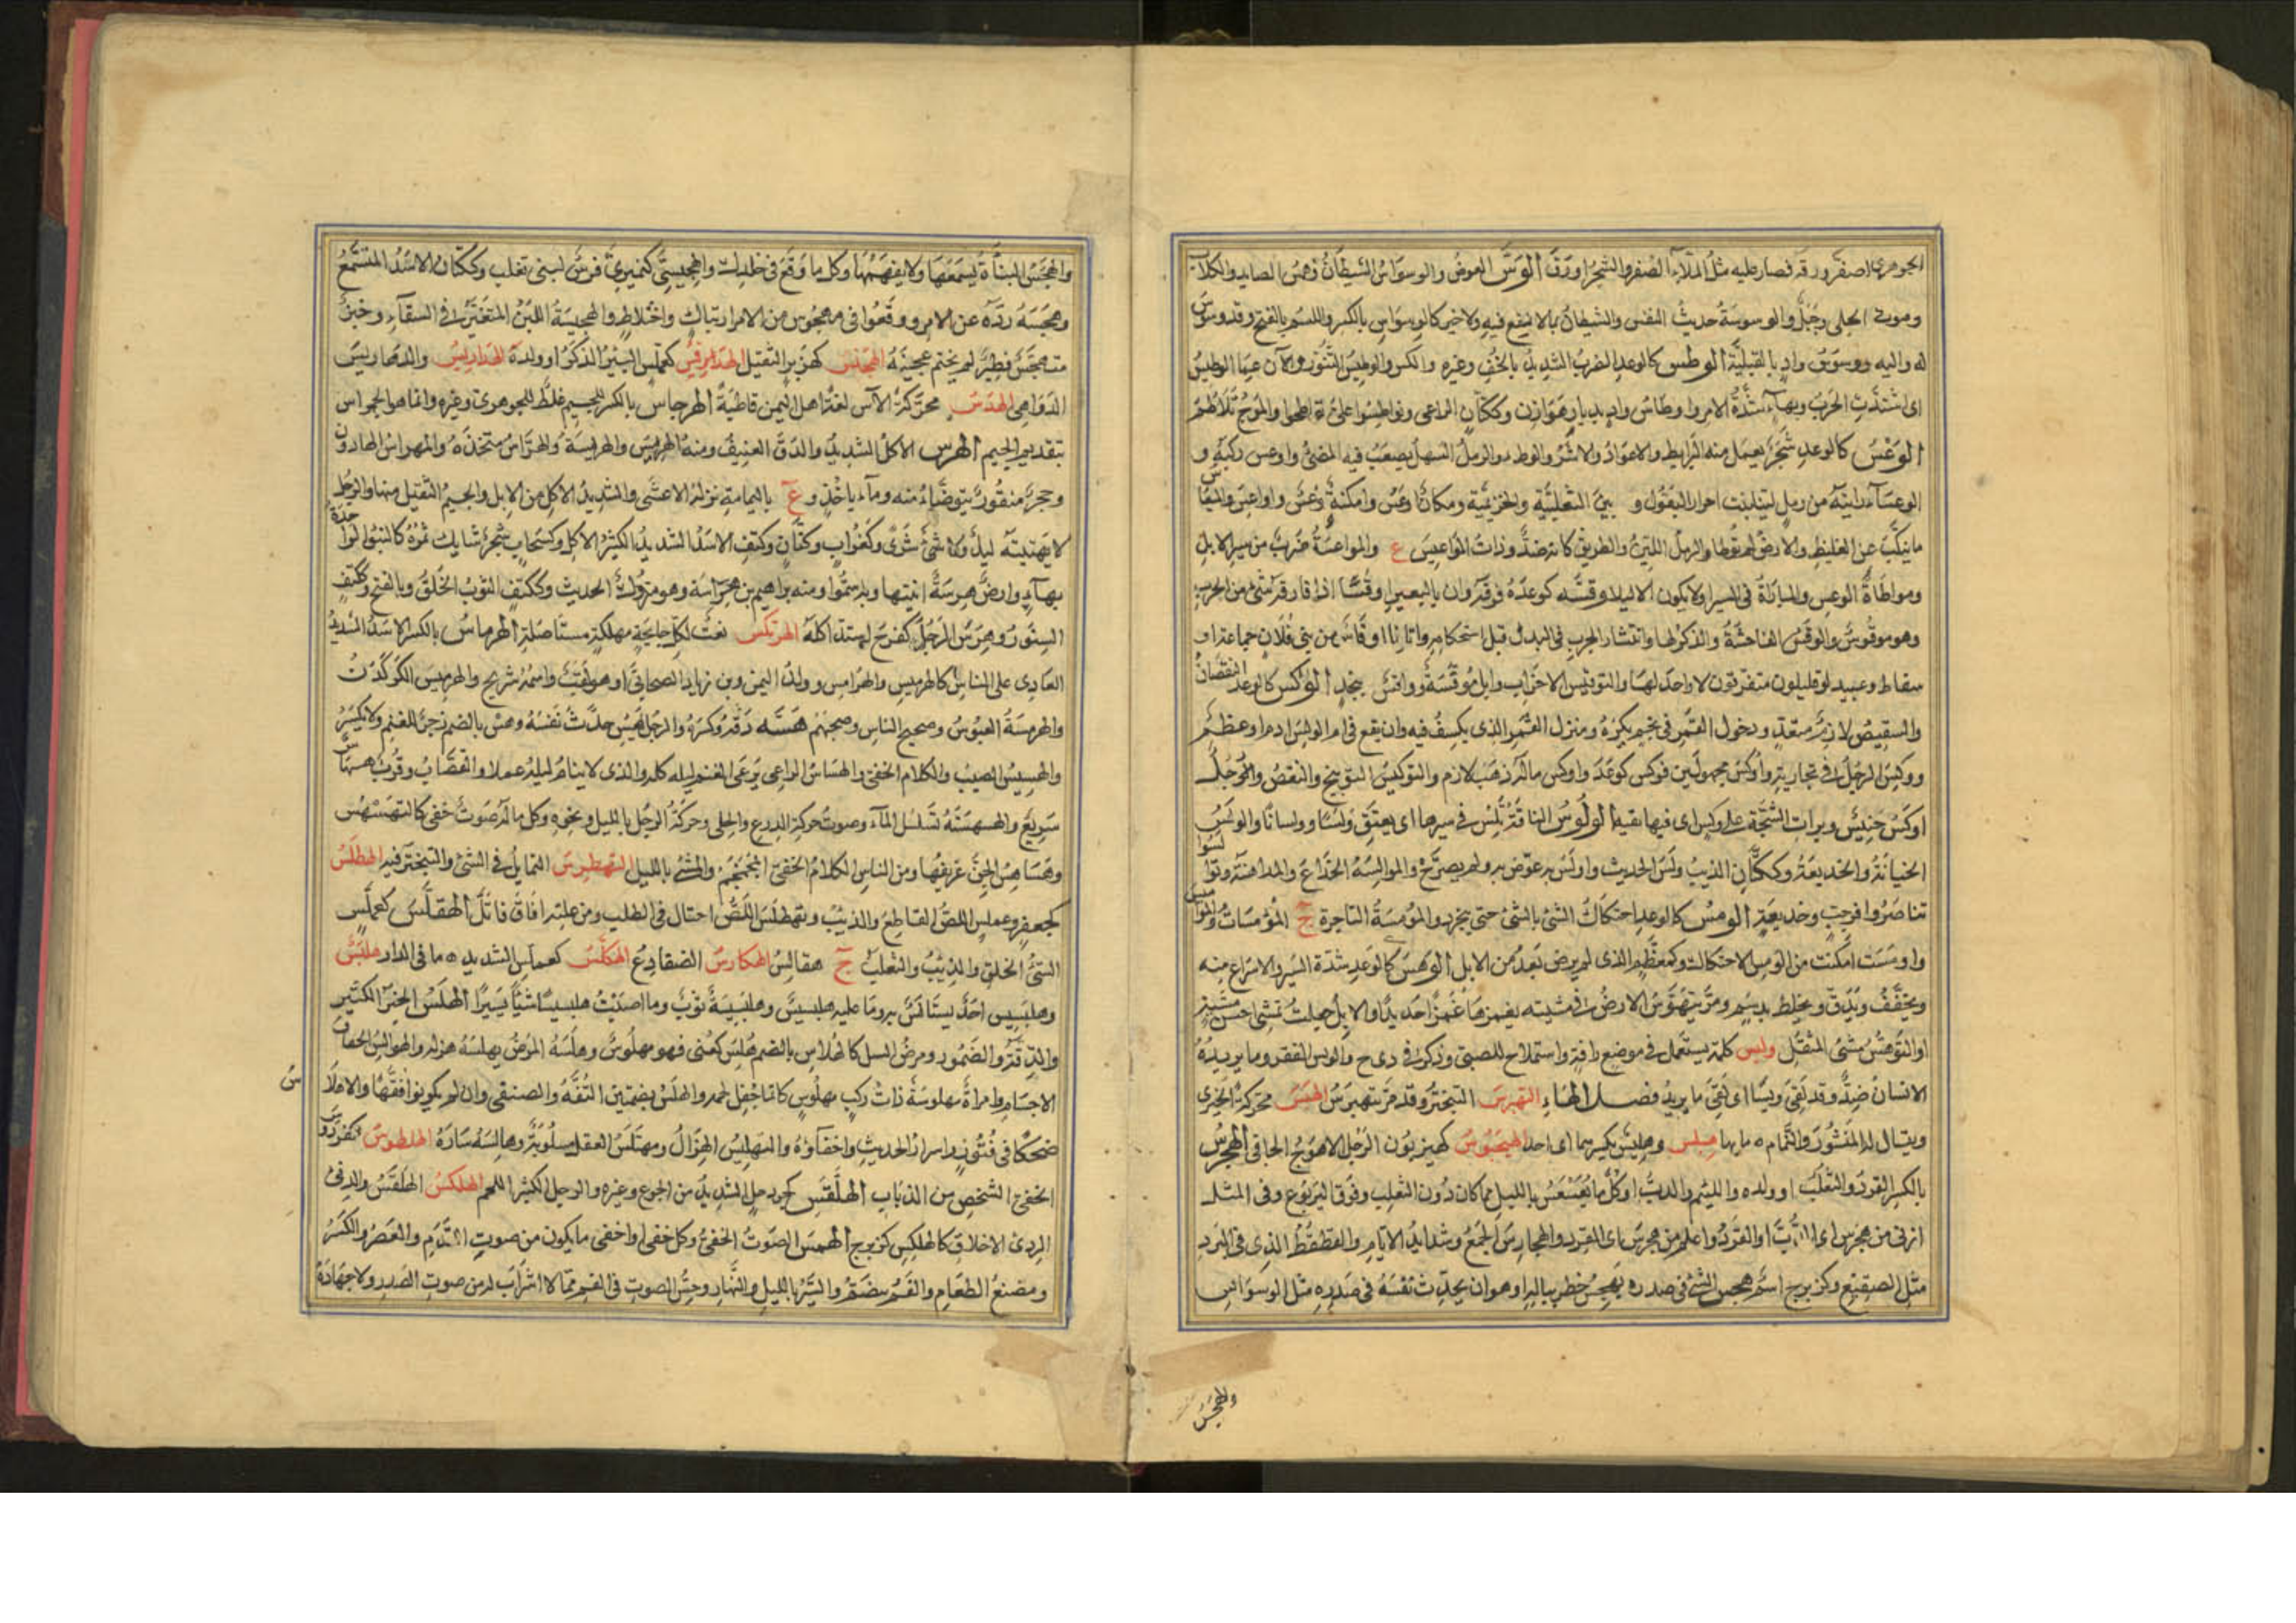 الجوهري اصفر ورقه فصار عليه مثل الملآء الصفر والشجر اورق الوَسّ العوض والوسواس الشيطان وهمس الصايد والكلاب
وصوت الحلى وجبل والوسوسة حديث النفس والشيطان بما لا نفع فيه ولا خير كالوسواس بالكسر والاسم بالفتح وقد وسوس
له واليه ووسوس واد بالقبلية الوطس كالوعد الضرب الشديد بالخف وغيره والكسر والوطيس التنور والآن حمى الوطيس
اى اشتدت الحرب وبهاء شدة الامر واوطاس واد بديار هوازن وككتان الراعى وتواطسوا على تواطحوا والموج تلاطم
الوعس كالوعد شجر يعمل منه البرابط والاعواد والاثر والوطء والرمل السهل يصعب فيه المشى واوعس ركبه و
الوعساء رابية من رمل لينة تنبت احرار البقول و بين الثعلبية والخزيمية ومكان اوعس وامكنة وعس واواعس والميعاس
ما تنكب عن الغليظ والارض لم توطا والرمل اللين والطريق كانه ضد وذات المواعيس ع والمواعسة ضرب من سير الابل
ومواطاة الوعس والمباراة فى السير او لا يكون الا ليلا وقسه كوعده قرفه وان بالبعير لوقسا اذا قارفه شئ من الجرب
وهو موقوس والوقس الفاحشة والذكر لها وانتشار الجرب فى البدن قبل استحكامه واتانا اوقاس من بنى فلان جماعة او
سقاط وعبيد او قليلون متفرقون لا واحد لها والتوقيس الاجراب وابل موقسة وواقس بنجد الوكس كالوعد النقصان
والتنقيص لازم متعد ودخول القمر فى نجم يكره ومنزل القمر الذى يكسف فيه وان يقع فى ام الراس دم او عظم
ووكس الرجل فى تجارته واوكس مجهولين فوكس كوعد واوكس ماله ذهب لازم والتوكيس التوبيخ والنقص ورجل
اوكس خسيس وبرات الشجة على وكس اى فيها بقية الولوس الناقة تلس فى سيرها اى تعنق ولسا وولسانا والولس
الخيانة والخديعة وككتان الذيب ولس الحديث واولس به عرض به ولم يصرح والموالسة الخداع والمداهنة وتوالسوا
تناصروا فى خب وخديعة الومس كالوعد احتكاك الشئ بالشئ حتى ينجرد والمومسة الفاجرة ج المومسات والمواميس
واومست امكنت من الومس الاحتكاك وكمعظم الذى لم يرض بعد من الابل الوهس كالوعد شدة السير والاسراع منه
الانسان ضد وقد لقى ويسا اى لقى ما يريد فصل الهاء التهبرس التبختر وقد مر يتهبرس الهبس محركة الخيرى
ويقال له المنثور والنمام ه ما بها هبلس وهبلس بكسرهما اى احد الهيجبوس كهيزبون الرجل الاهوج الجافى الهجرس
بالكسر القرد والثعلب او ولده واللئيم والدب او كل ما يعسعس بالليل مما كان دون الثعلب وفوق اليربوع وفى المثل
ازنى من هجرس اى الدب او القرد واغلم من هجرس اى القرد والهجارس الجمع وشدايد الايام والقطقط الذى فى البرد
مثل الصقيع وكزبرج اسم هجس الشئ فى صدره يهجس خطر بباله او هو ان يحدث نفسه فى صدره مثل الوسواس
والهجس
والهجس النباة تسمعها ولا تفهمها وكل ما وقع فى خلدك والهجيسى كنميرى فرس لبنى تغلب وككتان الاسد المتسمع
وهجسه رده عن الامر ووقعوا فى مهجوس من الامر ارتباك واختلاط والهجيسة اللبن المتغير فى السقاء وخبز
متهجس فطير لم يختمر عجينه الهجنس كهزبر الثقيل الهدبس كعملس الببر الذكر او ولده الهداريس والدهاريس
الدواهى الهدس محركة الآس لغة اهل اليمن قاطبة الهرجاس بالكسر للجسيم غلط للجوهرى وغيره وانما هو الجرهاس
بتقديم الجيم الهرس الاكل الشديد والدق العنيف ومنه الهريس والهريسة والهراس متخذه والمهراس الهاون
وحجر منقور يتوضا منه وماء باحد وع باليمامة نزله الاعشى والشديد الاكل من الابل والجسيم الثقيل منها والرجل
لا يتهيبه ليل ولا سرى وكغراب وكتان وكتف الاسد الشديد الكثير الاكل وكسحاب شجر شايك ثمره كالنبق الواحدة
بهاء وارض هرسة انبتها وبه سموا ومنه ابراهيم بن هراسة وهو متروك الحديث وككتف الثوب الخلق وبالفتح وككتف
السنور وهرس الرجل كفرح اشتد اكله الهركس نعت لكل جايحة مهلكة مستاصلة الهرماس بالكسر الاسد الشديد
العادى على الناس كالهرميس والهرامس وولد النمر وبن زياد الصحابى او هو لقب واسمه شريح والهرميس الكركدن
والهرمسة العبوس وضجيج الناس وضجتهم هسه دقه وكسره والرجل يهس حدث نفسه وهس بالضم زجر للغنم ولا يكسر
سريع والهسهسة تسلسل الماء وصوت حركة الدرع والحلى وحركة الرجل بالليل ونحوه وكل ما له صوت خفى كالتهسهس
وهساهس الجن عزيفها ومن الناس الكلام الخفى المجمجم والمشى بالليل التهطرس التمايل فى المشى والتبختر فيه الهطلس
كجعفر وعملس اللص القاطع والذيب وتهطلس اللص احتال فى الطلب ومن علته افاق وابل الهقلس كعملس
السئ الخلق والذيب والثعلب ج هقالس الهكارس الضفادع الهكلس كعملس الشديد ه ما فى الدار هلبس
وهلبسيس احد يستانس به وما عليه هلبسيس وهلبسيسة ثوب وما اصبت هلبسيسا شيا يسيرا الهلس الخير الكثير
والدقة والضمور ومرض السل كالهلاس بالضم هلس كعنى فهو مهلوس وهلسه المرض يهلسه هزله والهوالس الخفاف
الاجسام وامراة مهلوسة ذات ركب مهلوس كانما جفل لحمه والهلس بضمتين النقه والضعفى وان لم يكونوا نقها والاهلاس
ضحك فى فتور واسرار الحديث واخفاؤه والتهليس الهزال ومهتلس العقل مسلوبه وهالسه ساره الهلطوس كفردوس
الخفى الشخص من الذئاب الهلقس كجردحل الشديد من الجوع وغيره والرجل الكثير اللحم الهلكس الهلقس والدنى
الردى الاخلاق كالهلكس كزبرج الهمس الصوت الخفى وكل خفى او اخفى ما يكون من صوت القدم والعصر والكسر
ومضغ الطعام والفم منضم والسير بالليل والنهار وحس الصوت فى الفم مما لا اشراب له من صوت الصدر ولا جهارة